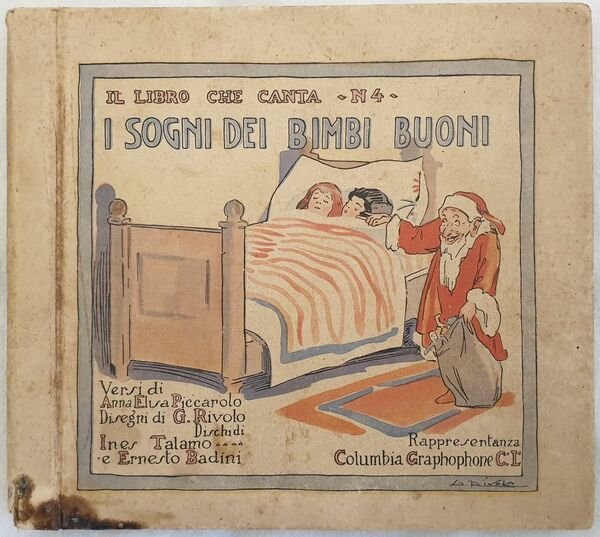 IL LIBRO CHE CANTA - N 4 -
I SOGNI DEI BIMBI BUONI
Versi di
Anna Elisa Piccarolo
Disegni di G. Rivolo
Dischi di
Ines Talamo ....
e Ernesto Badini
Rappresentanza
Columbia Graphophone C. L
G. Rivolo